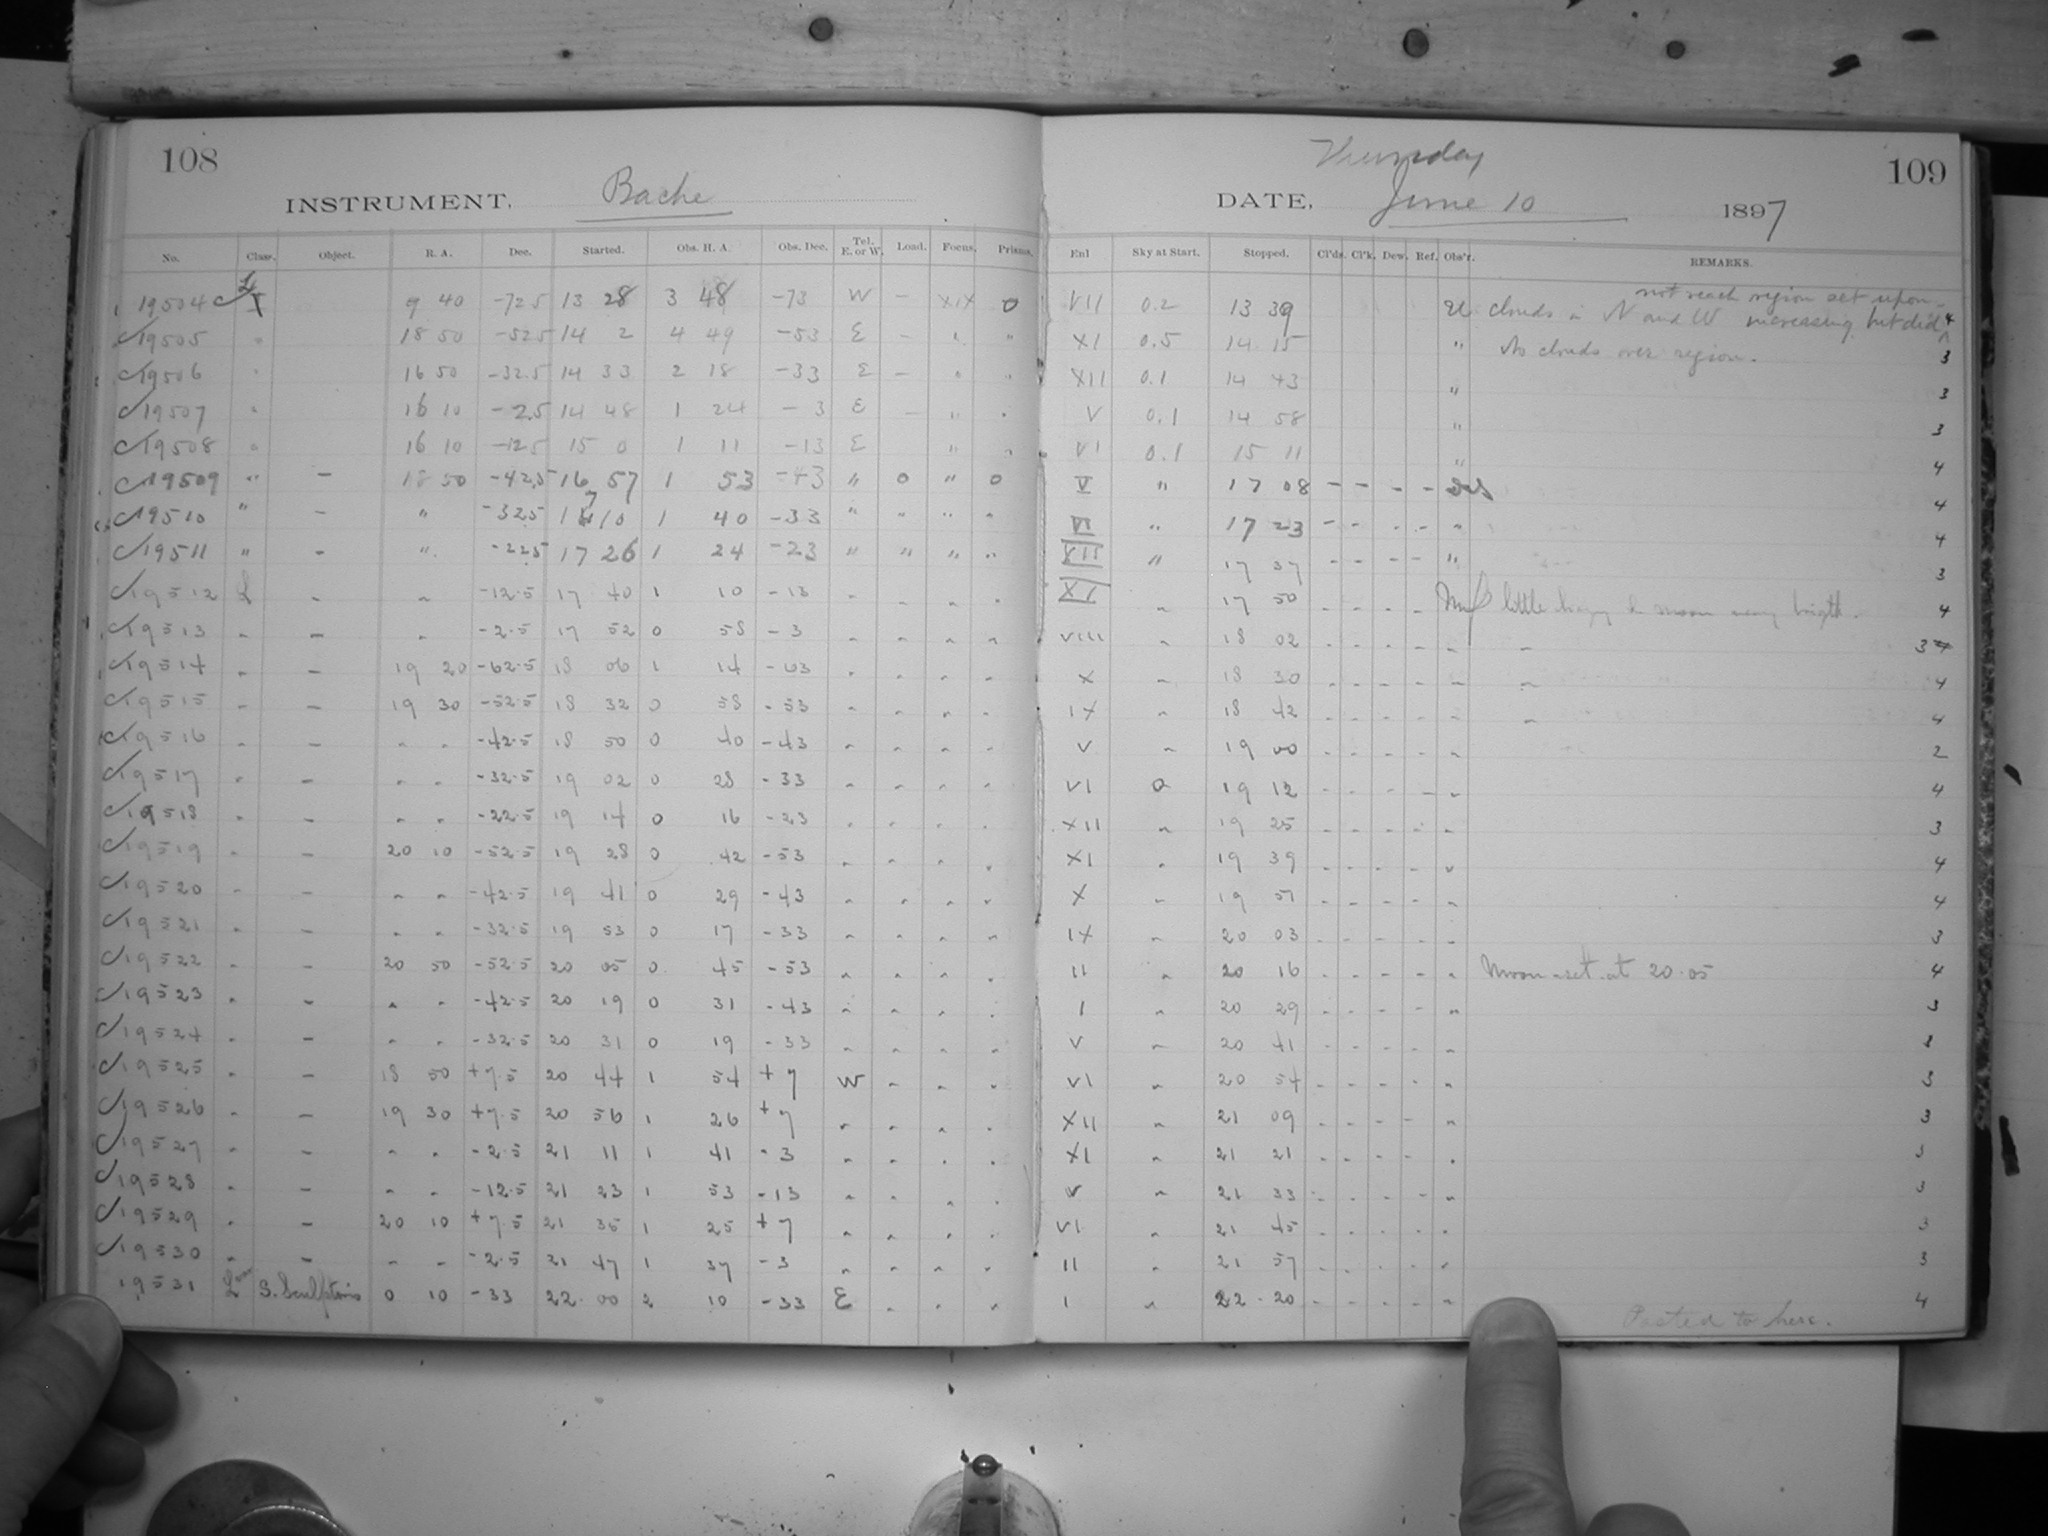 108
INSTRUMENT, Bache
No. Class. Object. R. A. Dec. Started. Obs. H. A. Obs. Dec. Tel. E. or W. Load. Focus. Prisms.
19504 9 40 -72.5 13 28 3 48 -73 W - XIX 0
19505 " 18 50 -52.5 14 2 4 49 -53 E - " "
19506 " 16 50 -32.5 14 33 2 18 -33 E - " "
19507 " 16 10 -2.5 14 48 1 24 -3 E - " "
19508 " 16 10 -12.5 15 0 1 11 -13 E " "
19509 " - 18 50 -42.5 16 57 1 53 -43 " 0 " 0
19510 " - " -32.5 17 10 1 40 -33 " " " "
19511 " - " -22.5 17 26 1 24 -23 " " " "
19512 L - " -12.5 17 40 1 10 -13 " " " "
19513 " - " -2.5 17 52 0 58 -3 " " " "
19514 " - 19 20 -62.5 18 06 1 14 -63 " " " "
19515 " - 19 30 -52.5 18 32 0 58 -53 " " " "
19516 " - " " -42.5 18 50 0 40 -43 " " " "
19517 " - " " -32.5 19 02 0 28 -33 " " " "
19518 " - " " -22.5 19 14 0 16 -23 " " " "
19519 " - 20 10 -52.5 19 28 0 42 -53 " " " "
19520 " - " " -42.5 19 41 0 29 -43 " " " "
19521 " - " " -32.5 19 53 0 17 -33 " " " "
19522 " - 20 50 -52.5 20 05 0 45 -53 " " " "
19523 " - " " -42.5 20 19 0 31 -43 " " " "
19524 " - " " -32.5 20 31 0 19 -33 " " " "
19525 " - 18 50 +7.5 20 44 1 54 +7 W " " "
19526 " - 19 30 +7.5 20 56 1 26 +7 " " " "
19527 " - " " -2.5 21 11 1 41 -3 " " " "
19528 " - " " -12.5 21 23 1 53 -13 " " " "
19529 " - 20 10 +7.5 21 35 1 25 +7 " " " "
19530 " - " " -2.5 21 47 1 37 -3 " " " "
19531 S. Sculptoris 0 10 -33 22 00 2 10 -33 E " " "
Thursday
109
DATE, June 10 1897
Enl Sky at Start. Stopped. Cl'ds. Cl'k. Dew. Ref. Obs'r. REMARKS.
not reach region set upon
VII 0.2 13 39 clouds in N and W increasing but did 4
XI 0.5 14 15 " No clouds over region. 3
XII 0.1 14 43 " 3
V 0.1 14 58 " 3
VI 0.1 15 11 " 4
V " 17 08 - - - - 4
VI " 17 23 - - - " 4
XII " 17 37 - - - - " 3
XI " 17 50 - - - - little hazy & moon very bright. 4
VIII " 18 02 - - - - " " 3
X " 18 30 - - - - " " 4
IX " 18 42 - - - - " " 4
V " 19 00 - - - - " 2
VI 0 19 12 - - - - " 4
XII " 19 25 - - - - " 3
XI " 19 39 - - - - " 4
X " 19 51 - - - - " 4
IX " 20 03 - - - - " 3
II " 20 16 - - - - " Moon set at 20.05 4
I " 20 29 - - - - " 3
V " 20 41 - - - - " 3
VI " 20 54 - - - - " 3
XII " 21 09 - - - - " 3
XI " 21 21 - - - - " 3
V " 21 33 - - - - " 3
VI " 21 45 - - - - " 3
II " 21 57 - - - - " 3
I " 22 20 - - - - " 4
Posted to here.